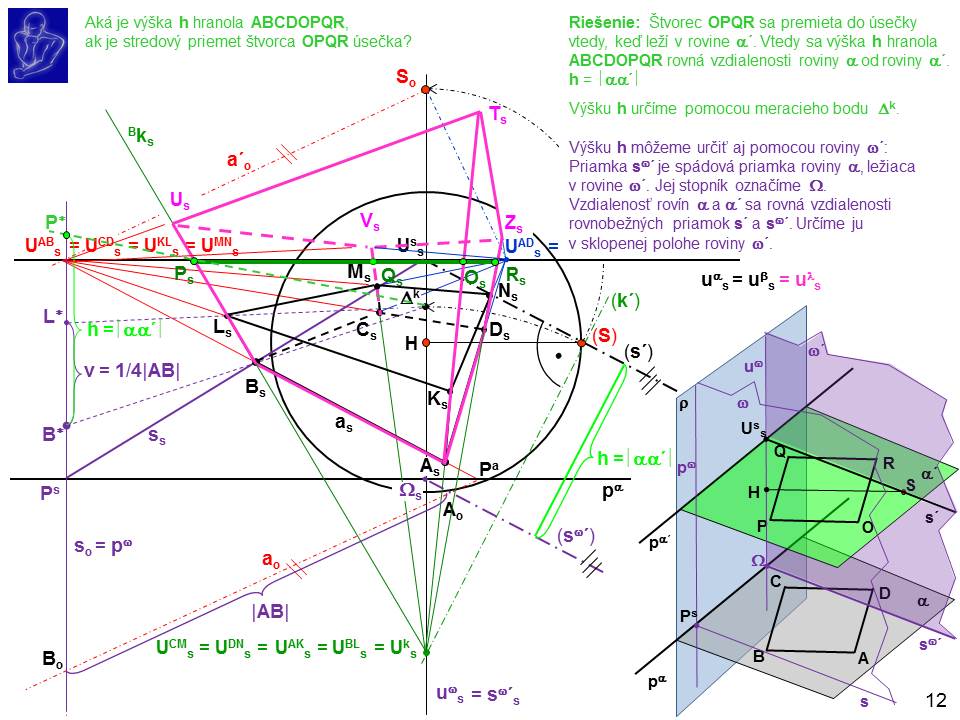 Aká je výška h hranola ABCDOPQR,
ak je stredový priemet štvorca OPQR úsečka?
Riešenie: Štvorec OPQR sa premieta do úsečky
vtedy, keď leží v rovine α´. Vtedy sa výška h hranola
ABCDOPQR rovná vzdialenosti roviny α od roviny α´.
h = |αα´|
Výšku h určíme pomocou meracieho bodu Δᵏ.
Výšku h môžeme určiť aj pomocou roviny ω´:
Priamka sω´ je spádová priamka roviny α, ležiaca
v rovine ω´. Jej stopník označíme Ω.
Vzdialenosť rovín α a α´ sa rovná vzdialenosti
rovnobežných priamok s´ a sω´. Určíme ju
v sklopenej polohe roviny ω´.
So
Ts
Bks
a´o
Us
Vs
Zs
P*
UABs = UCDs = UKLs = UMNs
Us
UADs =
uαs = uβs = uλs
Ps
Ms
Qs
Os
Rs
Ns
Δk
(k´)
L*
h = |αα´|
Ls
Cs
Ds
H
(S)
(s´)
v = 1/4|AB|
Bs
Ks
as
B*
ss
As
Pa
h = |αα´|
Ps
Ωs
pα
Ao
so = pω
(sω´)
ao
|AB|
UCMs = UDNs = UAKs = UBLs = Uks
Bo
uωs = sω´s
ρ
uω
ω
ω
Uss
pω
Q
R
α´
H
S
P
O
s´
pα´
Ω
C
D
α
Ps
B
A
sω´
pα
s
12